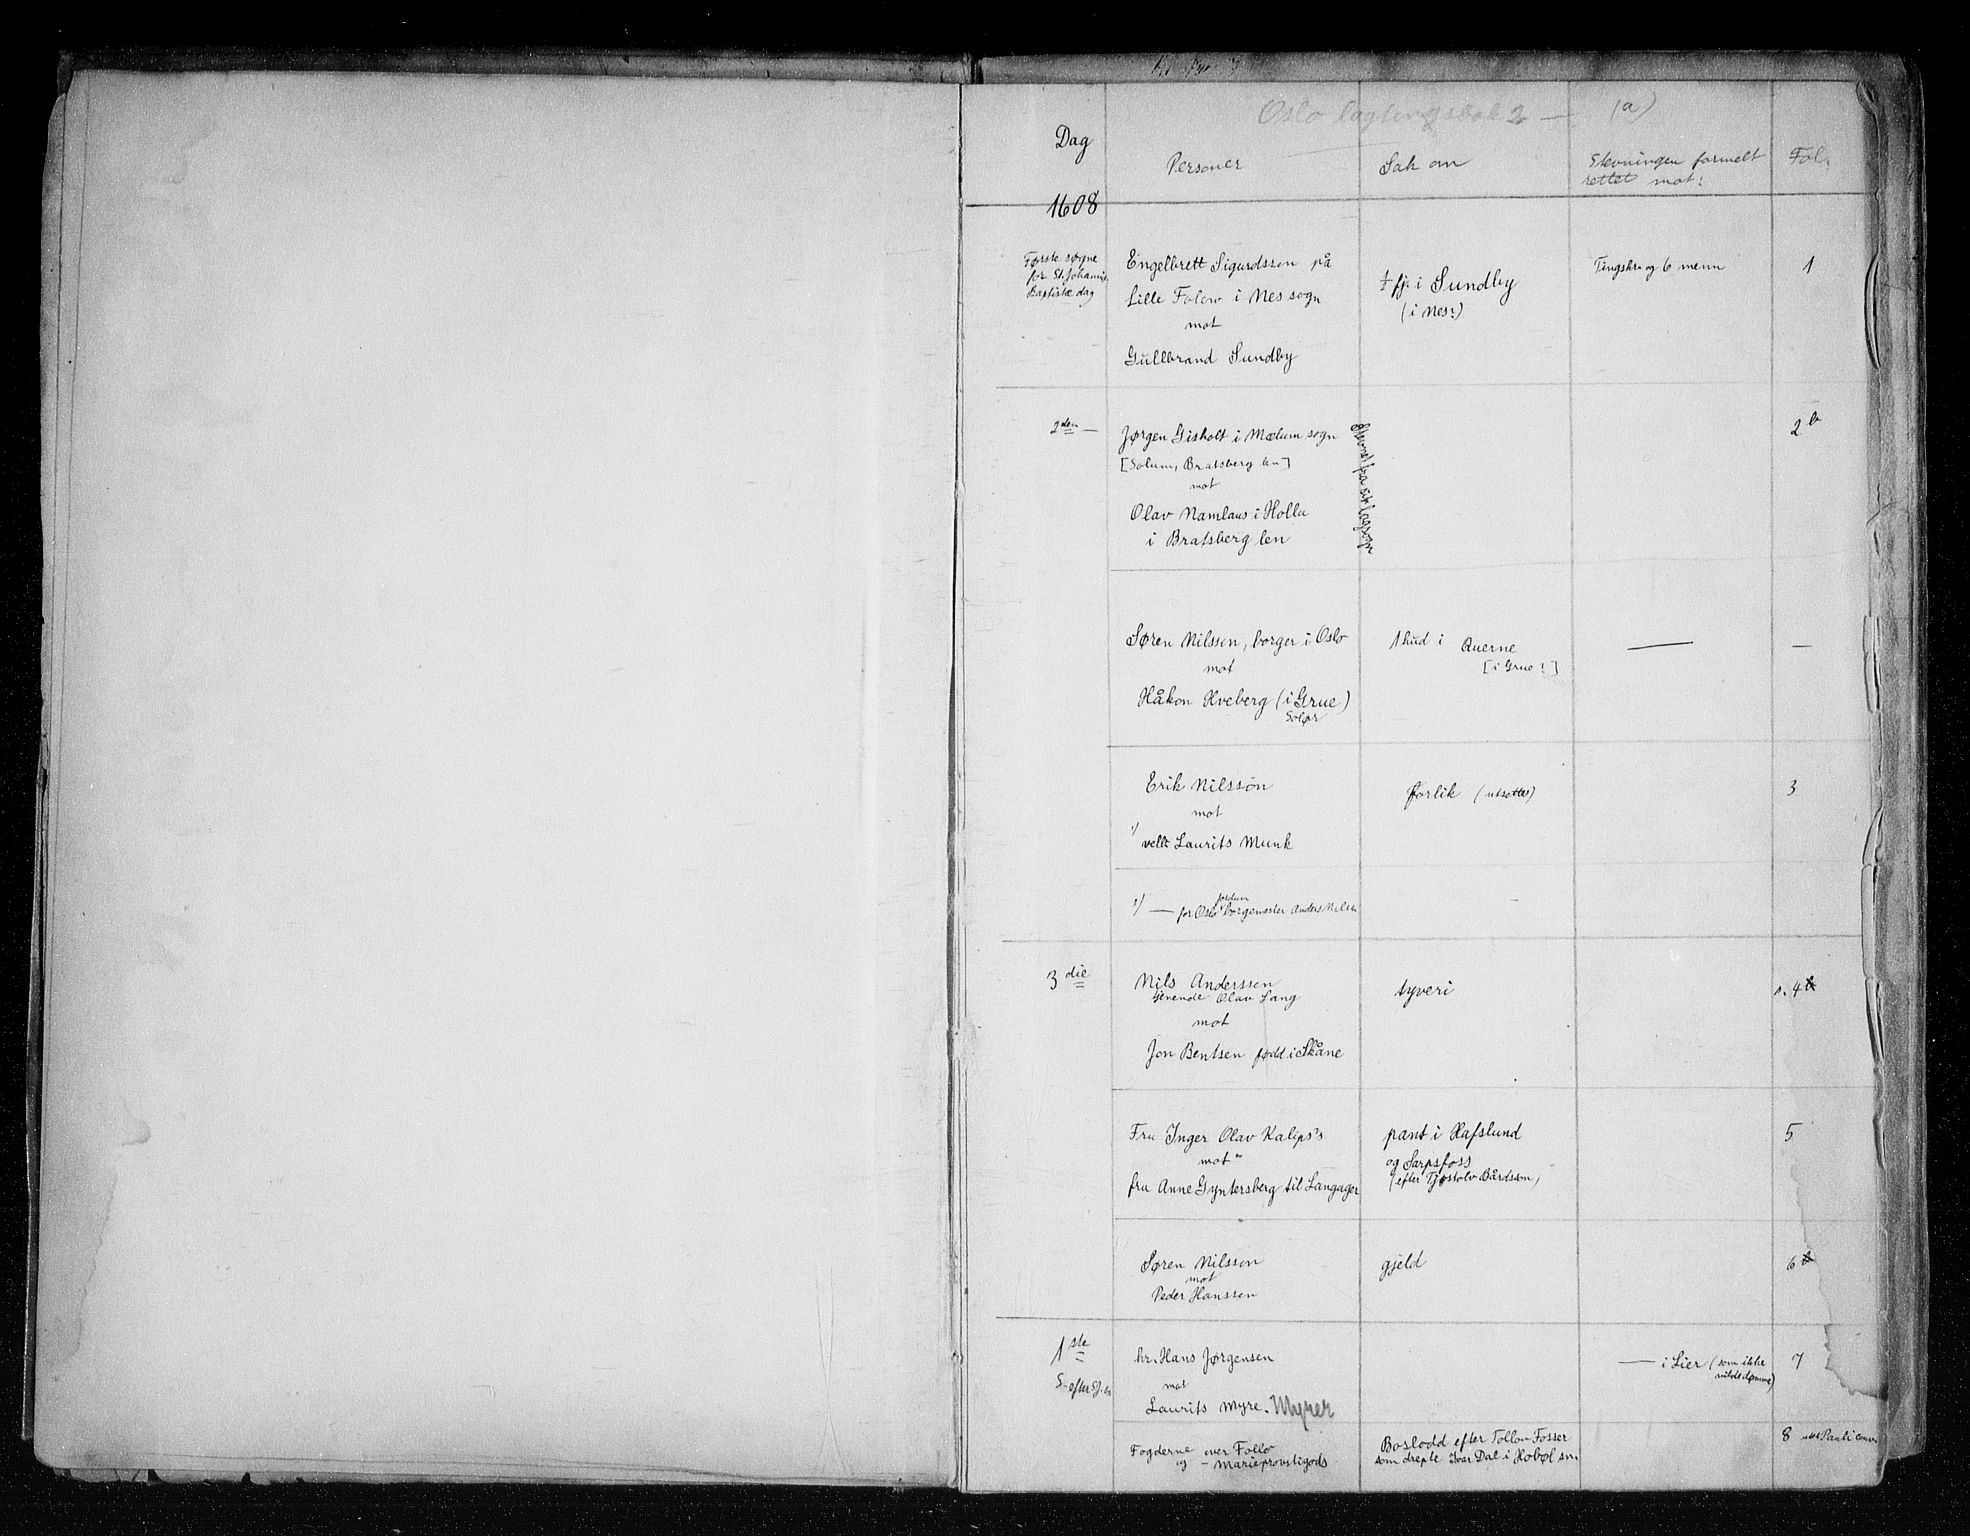 Oslo lagtingsbok 2 — (a)
Dag
Personer
Sak om
Stevningen formelt
rettet mot:
Fol.
1608
Første søgne
før St. Johannis
Baptistæ dag
Engelbrett Sigurdsson på
Lille Folow i Nes sogn
mot
Gullbrand Sundby
fj. i Sundby
(i Nes?)
Tingskr. og 6 menn
1
2den —
Jørgen Gisholt i Mælum sogn
[Solum, Bratsberg len]
mot
Olav Namlaus i Holla
i Bratsberg len
Stevnet fra sit lagsogn
2 b
Søren Nilssøn, borger i Oslo
mot
Håkon Hveberg (i Grue)
Solør
1 hud i Querne
[i Grue?]
—
—
Erik Nilssøn
mot
1) velb. Laurits Munk
forlik (utsettes)
3
1) — for Oslo fordum borgemester Anders Nilss.
3die
Nils Anderssen
tjenende Olav Lang
mot
Jon Bentsen født i Skåne
tyveri
4
Fru Inger Olav Kalips's
mot
fru Anne Gyntersberg til Langager
pant i Hafslund
og Sarpsfoss
(efter Tjostolv Bårdssøn)
5
Søren Nilsson
mot
Peder Hanssen
gjeld
6
1ste
S. efter St.
hr. Hans Jørgensen
mot
Laurits Myre. Myrer
— i Lier (som ikke
vilde dømme)
7
Fogderne over Follo
og — Marieprovstigods
Boslodd efter Tollov Fosser
som drepte Iver Dal i Hobøl sn.
8 Pauli